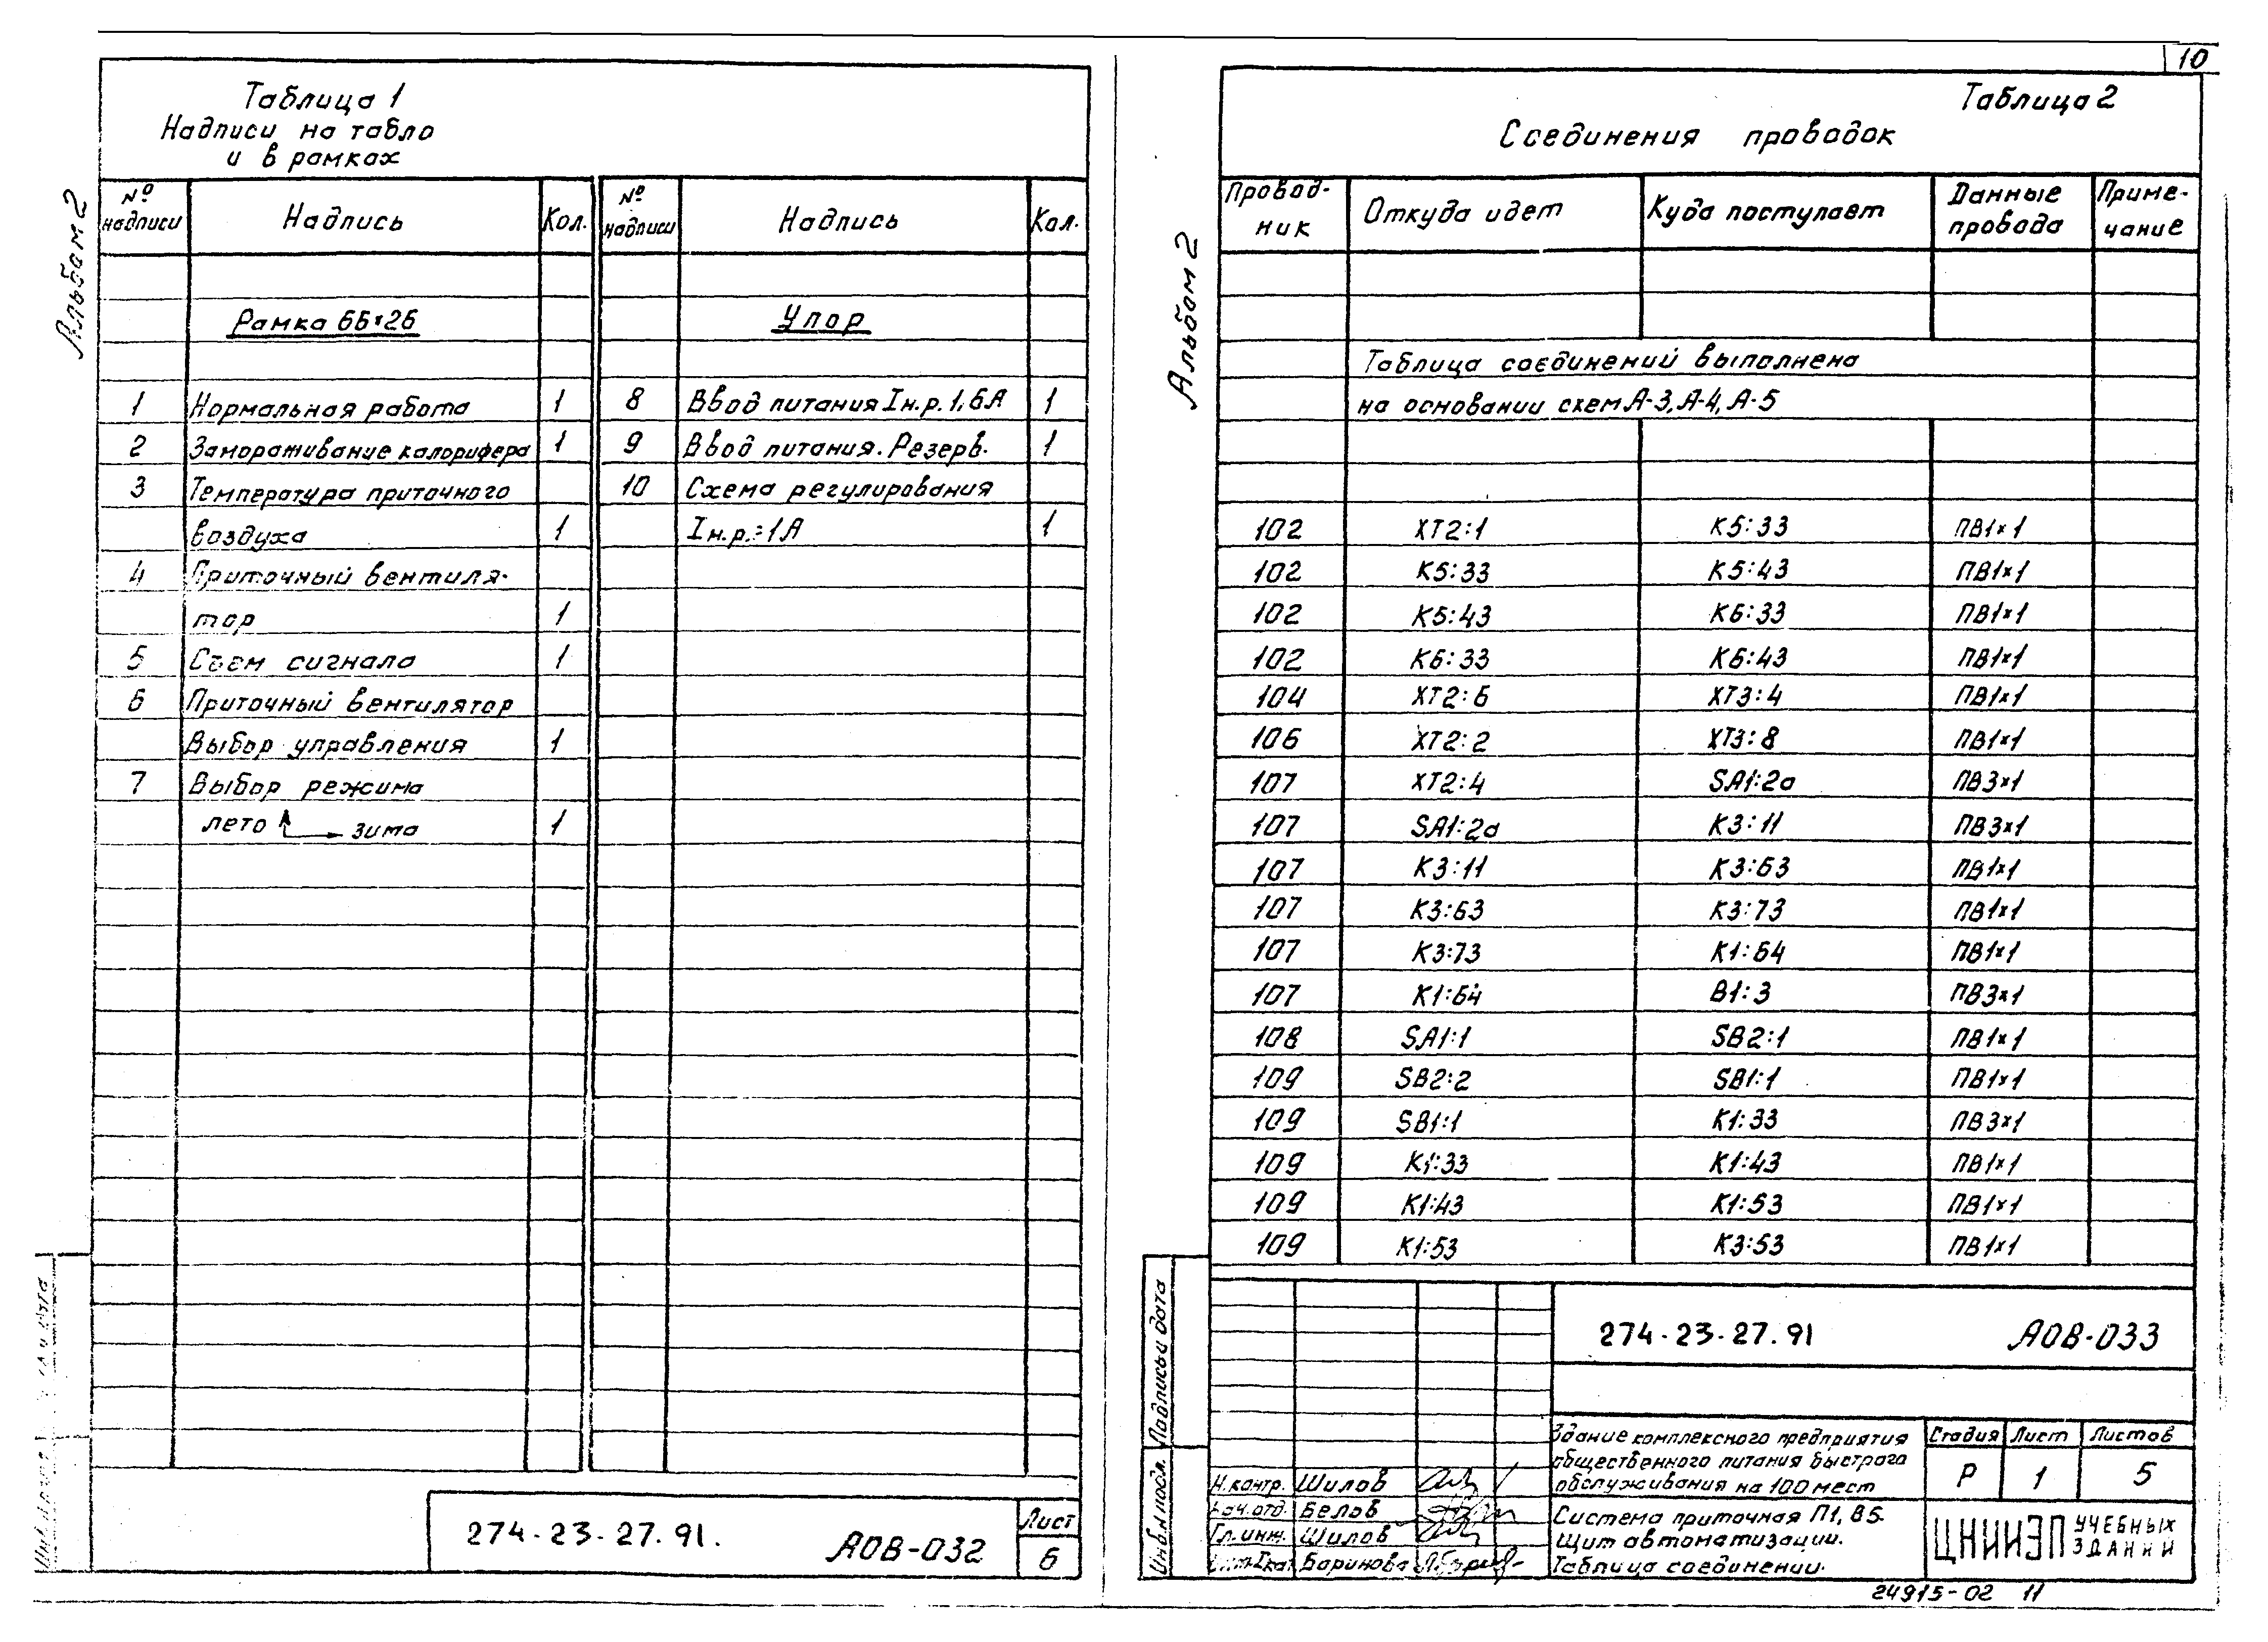 10
Альбом 2
Таблица 1
Надписи на табло
и в рамках
№ надписи Надпись Кол. № надписи Надпись Кол.
Рамка 66×26 Упор
1 Нормальная работа 1 8 Ввод питания Iн.р. 1,6А 1
2 Замораживание калорифера 1 9 Ввод питания. Резерв. 1
3 Температура приточного 10 Схема регулирования
воздуха 1 Iн.р.=1А 1
4 Приточный вентиля-
тор 1
5 Съем сигнала 1
6 Приточный вентилятор
Выбор управления 1
7 Выбор режима
лето зима 1
274-23-27.91. АОВ-032
Лист
6
Альбом 2
Таблица 2
Соединения проводок
Провод-ник Откуда идет Куда поступает Данные провода Приме-чание
Таблица соединений выполнена
на основании схем А-3, А-4, А-5
102 XT2:1 К5:33 ПВ1×1
102 К5:33 К5:43 ПВ1×1
102 К5:43 К6:33 ПВ1×1
102 К6:33 К6:43 ПВ1×1
104 XT2:6 XT3:4 ПВ1×1
106 XT2:2 XT3:8 ПВ1×1
107 XT2:4 SA1:2а ПВ3×1
107 SA1:2а К3:11 ПВ3×1
107 К3:11 К3:63 ПВ1×1
107 К3:63 К3:73 ПВ1×1
107 К3:73 К1:64 ПВ1×1
107 К1:64 В1:3 ПВ3×1
108 SA1:1 SB2:1 ПВ1×1
109 SB2:2 SB1:1 ПВ1×1
109 SB1:1 К1:33 ПВ3×1
109 К1:33 К1:43 ПВ1×1
109 К1:43 К1:53 ПВ1×1
109 К1:53 К3:53 ПВ1×1
Инв.№ подл. Подпись и дата
274-23-27.91 АОВ-033
Здание комплексного предприятия
общественного питания быстрого
обслуживания на 100 мест
Стадия Лист Листов
Р 1 5
Н.контр. Шилов
Нач.отд. Белов
Гл.инж. Шилов
Баринова
Система приточная П1, В5.
Щит автоматизации.
Таблица соединении.
ЦНИИЭП УЧЕБНЫХ ЗДАНИЙ
24915-02 11